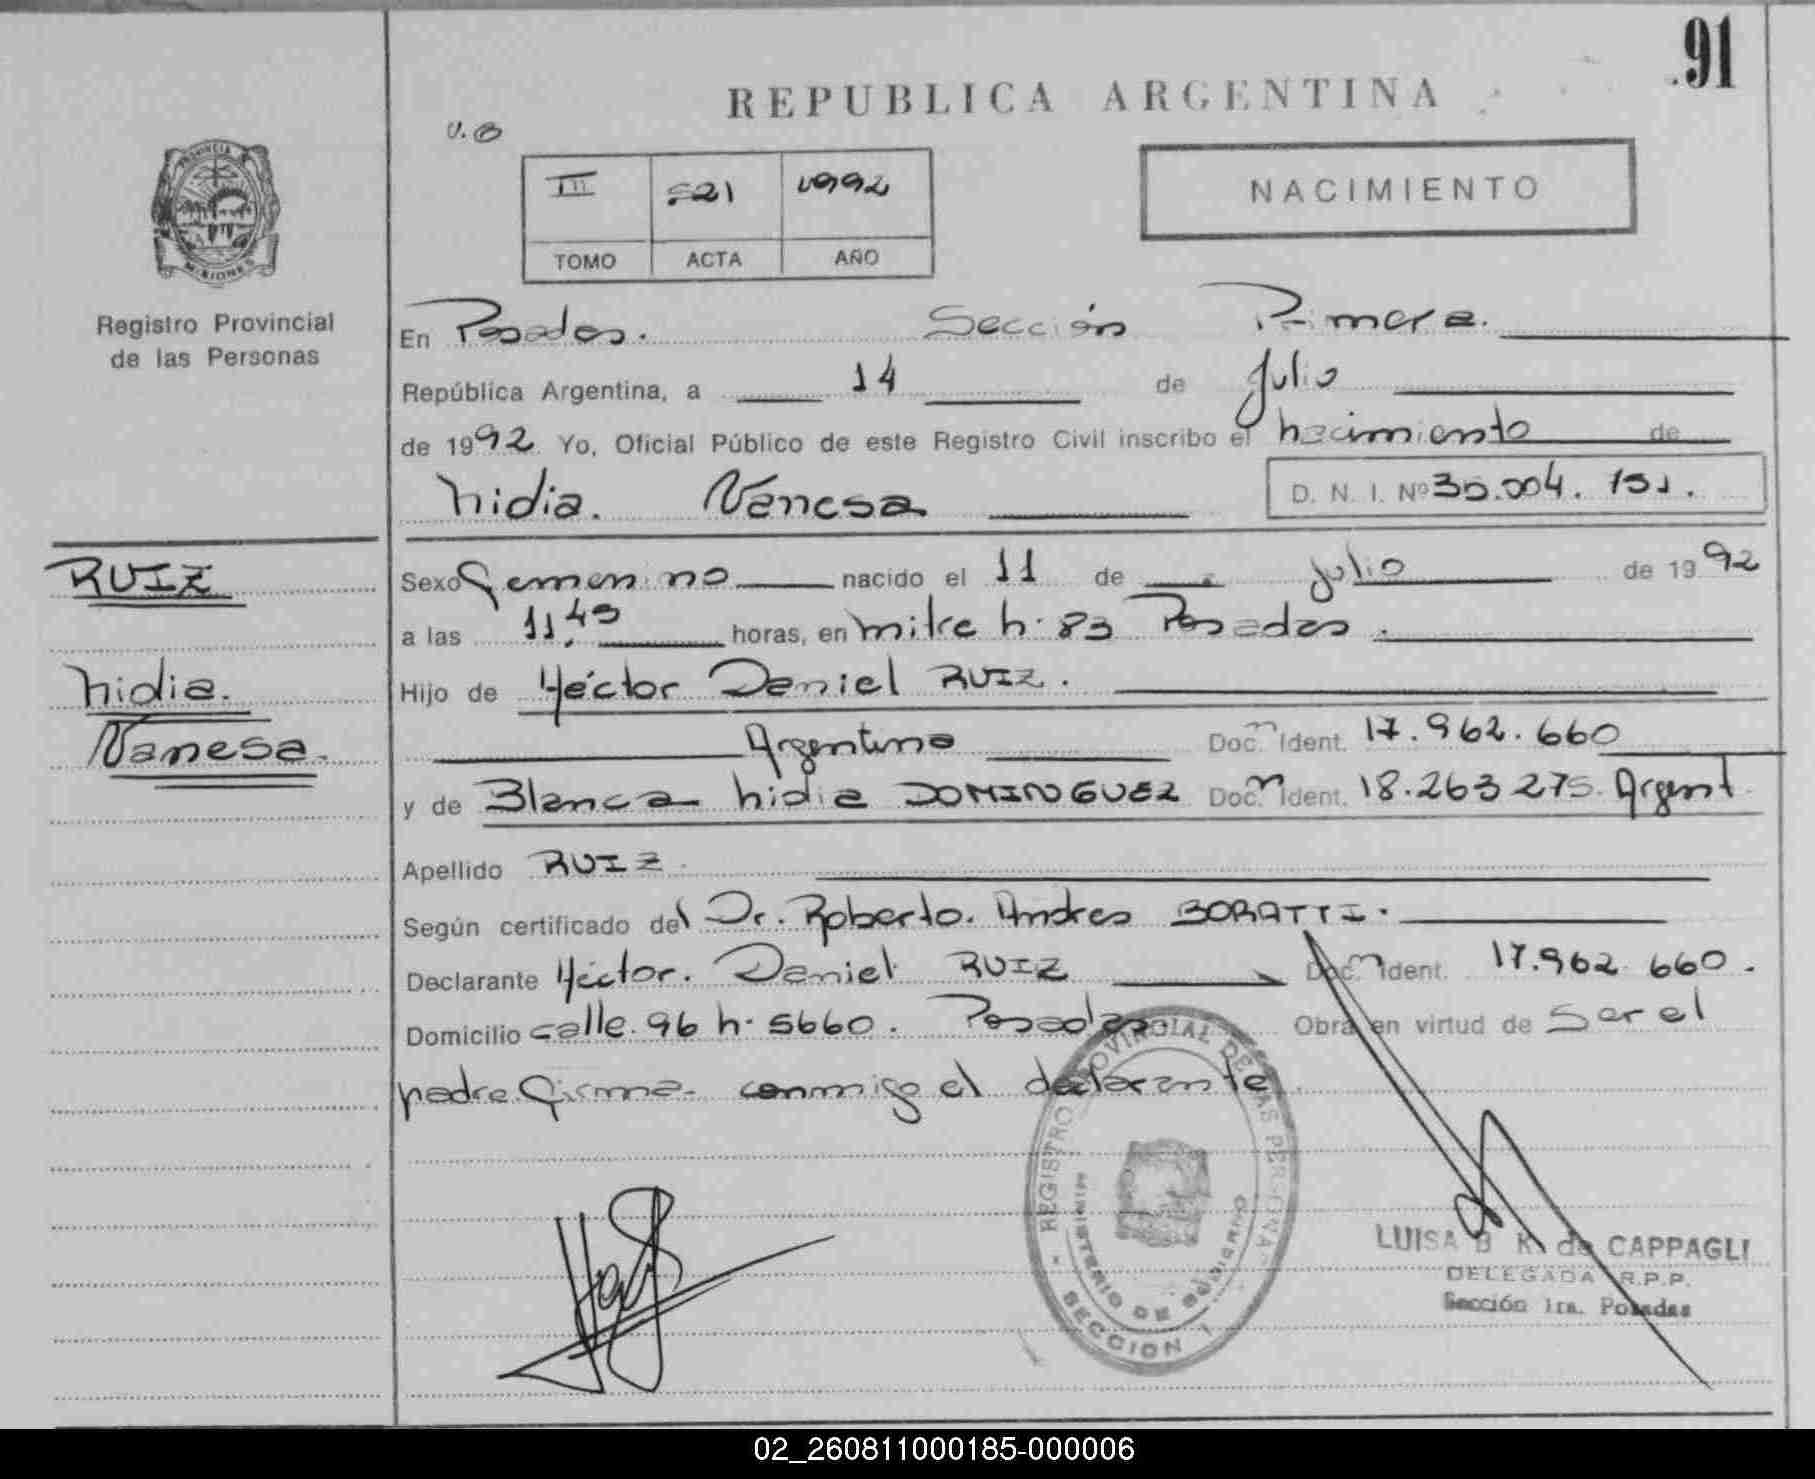 91
REPUBLICA ARGENTINA
III 521 1992
TOMO ACTA AÑO
NACIMIENTO
PROVINCIA
MISIONES
Registro Provincial
de las Personas
En Posadas. Sección Primera.
República Argentina, a 14 de Julio
de 1992 Yo, Oficial Público de este Registro Civil inscribo el nacimiento de
Nidia. Vanesa D. N. I. Nº
RUIZ
Nidia.
Vanesa.
Sexo Femenino nacido el 11 de Julio de 1992
a las 11,45 horas, en Mitre N. 83 Posadas.
Hijo de Héctor Daniel RUIZ.
Argentino Doc.m Ident. 17.962.660
y de Blanca Nidia DOMINGUEZ Doc.m Ident. 18.263275. Argent
Apellido RUIZ.
Según certificado del Dr. Roberto. Andres BORATTI.
Declarante Héctor. Daniel RUIZ Doc.m Ident. 17.962.660.
Domicilio calle. 96 N. 5660. Posadas Obra en virtud de Ser el
padre. Firma. conmigo el declarante
REGISTRO PROVINCIAL DE LAS PERSONAS
MINISTERIO DE GOBIERNO
SECCION 1
LUISA B K. de CAPPAGLI
DELEGADA R.P.P.
Sección 1ra. Posadas
02_260811000185-000006